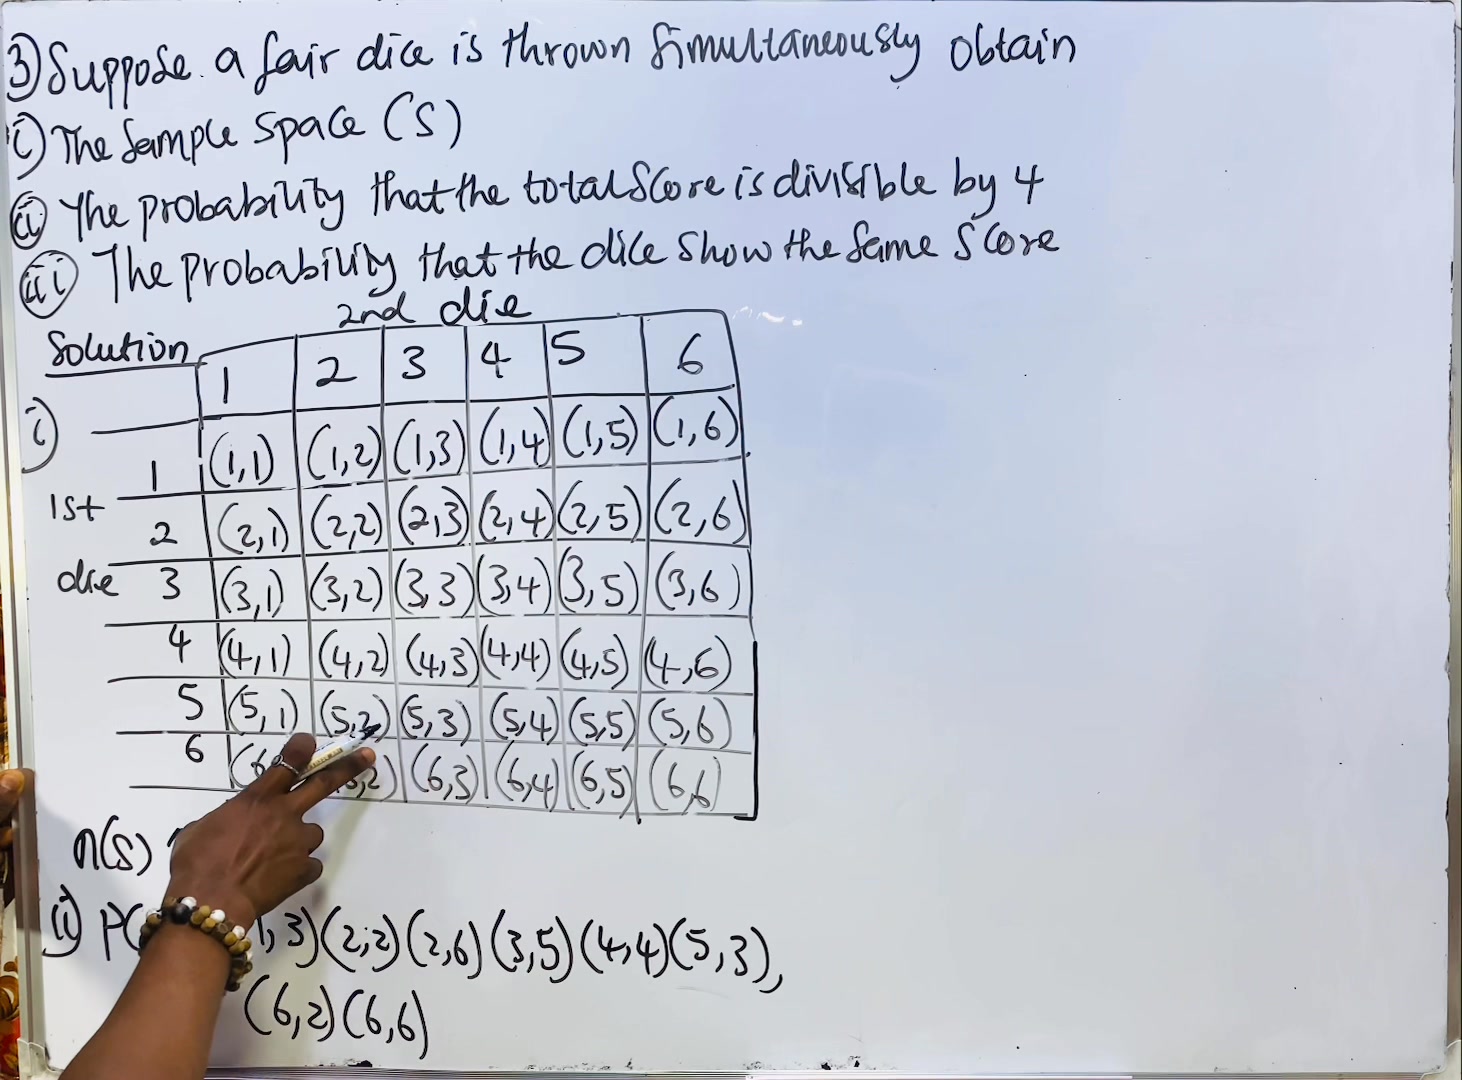 3) Suppose a fair dice is thrown simultaneously obtain
i) The sample space (S)
ii) The probability that the total score is divisible by 4
iii) The probability that the dice show the same score
2nd die
Solution
1 2 3 4 5 6
i)
1 (1,1) (1,2) (1,3) (1,4) (1,5) (1,6)
1st
2 (2,1) (2,2) (2,3) (2,4) (2,5) (2,6)
die 3 (3,1) (3,2) (3,3) (3,4) (3,5) (3,6)
4 (4,1) (4,2) (4,3) (4,4) (4,5) (4,6)
5 (5,1) (5,2) (5,3) (5,4) (5,5) (5,6)
6 (6,3) (6,4) (6,5) (6,6)
n(s)
ii) P( 1,3) (2,2) (2,6) (3,5) (4,4) (5,3),
(6,2) (6,6)